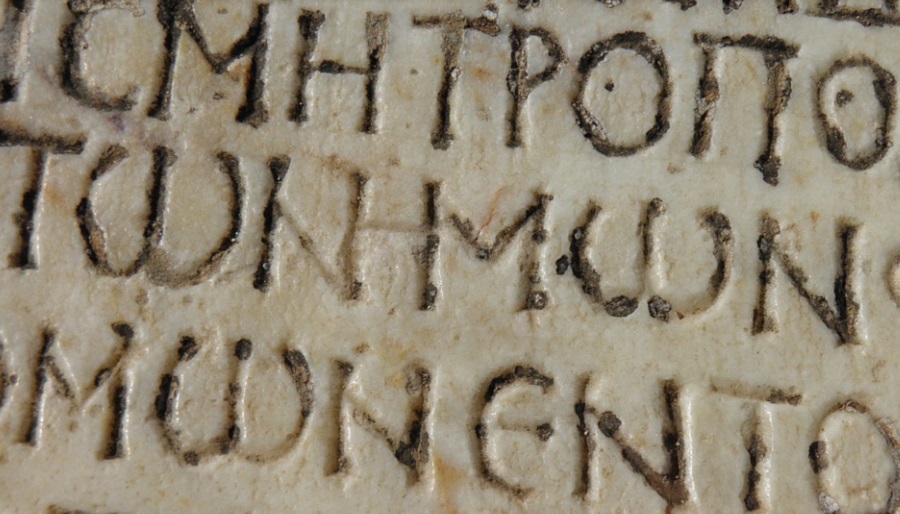 ΙϹΜΗΤΡΟΠΟ
ΤΩΝΗΜΩΝ
ΟΜΩΝЄΝΤΟ